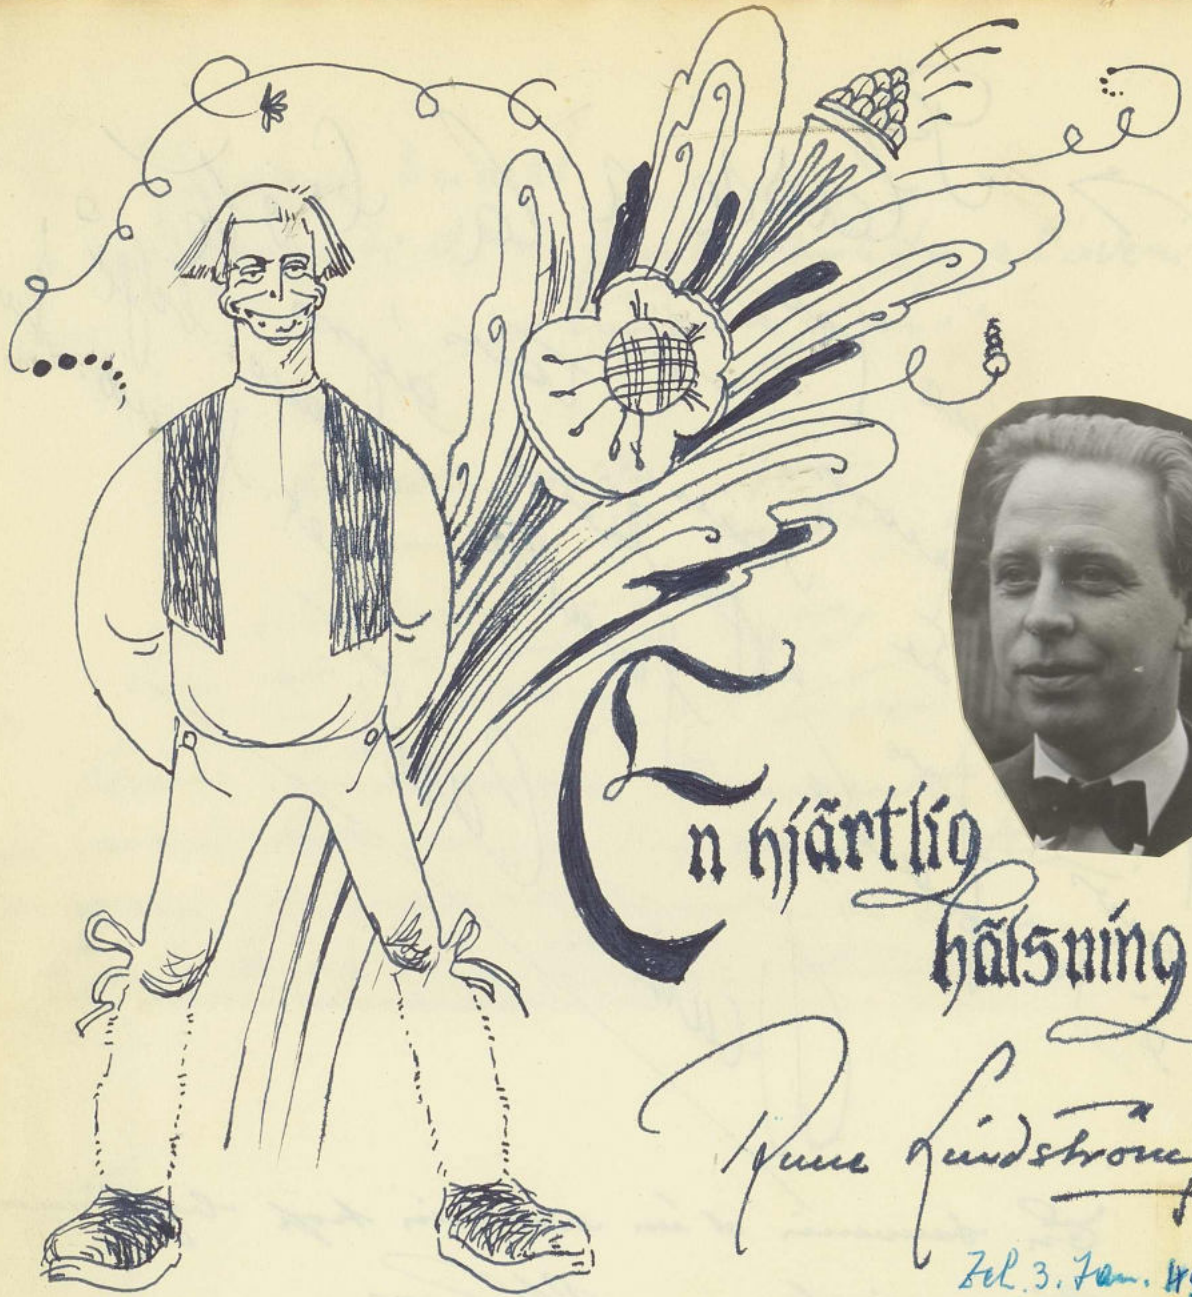 En hjärtlig
hälsning
Rune Lindström
3. Jan.